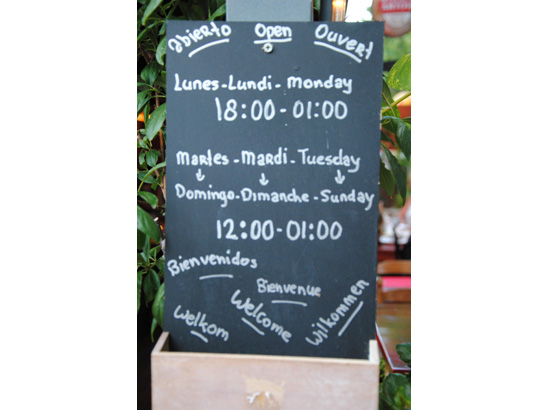 abierto Open Ouvert
Lunes-Lundi-Monday
18:00-01:00
Martes-Mardi-Tuesday
Domingo-Dimanche-Sunday
12:00-01:00
Bienvenidos
Bienvenue
Welkom Welcome Wilkommen